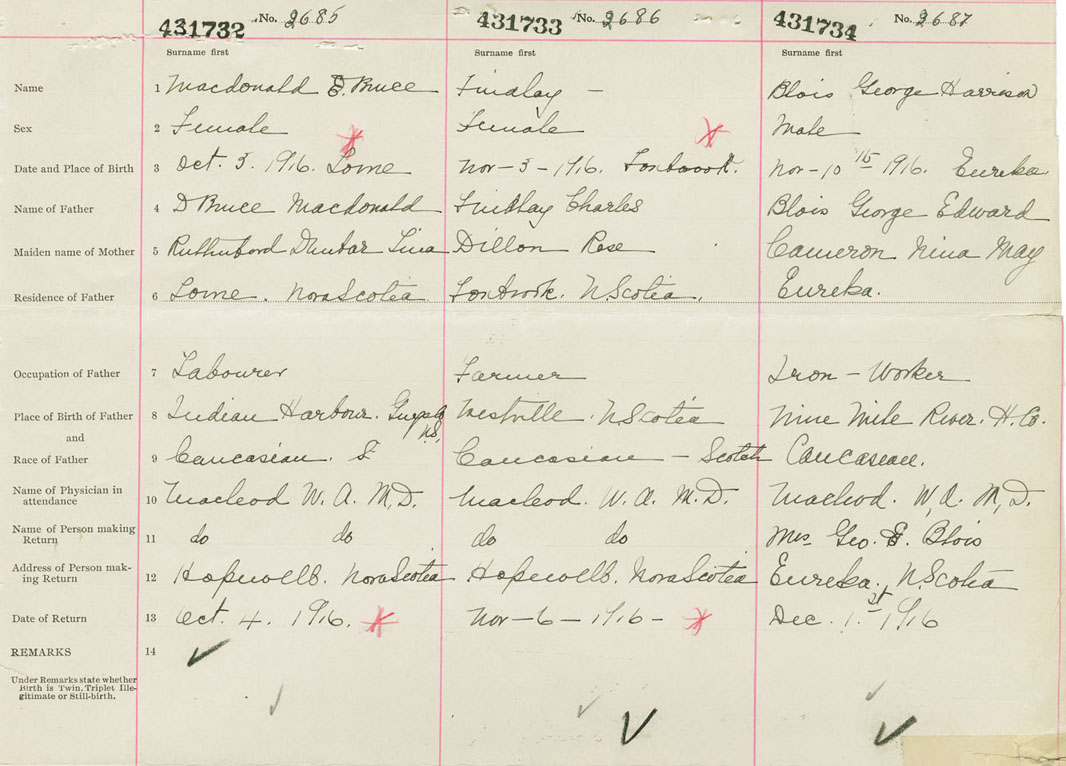 431732 No. 2685 431733 No. 2686 431734 No. 2687
Surname first Surname first Surname first
Name 1 Macdonald Bruce Findlay – Blois George Harrison
Sex 2 Female Female Male
Date and Place of Birth 3 Oct. 3. 1916. Lorne Nov – 3 – 1916. Foxbrook. Nov – 10 15 1916. Eureka
Name of Father 4 D Bruce Macdonald Findlay Charles Blois George Edward
Maiden name of Mother 5 Rutherford Dunbar Lina Dillon Rose Cameron Nina May
Residence of Father 6 Lorne. Nova Scotia Foxbrook. N. Scotia. Eureka.
Occupation of Father 7 Labourer Farmer Iron – Worker
Place of Birth of Father 8 Indian Harbour. N.S. Westville. N Scotia Nine Mile River. H. Co.
and
Race of Father 9 Caucasian. S Caucasian – Scotch Caucasean.
Name of Physician in
attendance 10 Macleod W. A. M.D. Macleod. W. A. M.D. Macleod. W. A. M.D.
Name of Person making
Return 11 do do do do Mrs Geo. E. Blois
Address of Person mak-
ing Return 12 Hopewell. Nova Scotia Hopewell. Nova Scotia Eureka. N. Scotia
Date of Return 13 Oct. 4. 1916. Nov – 6 – 1916 – Dec. 1st 1916
REMARKS 14
Under Remarks state whether
Birth is Twin, Triplet Ille-
gitimate or Still-birth.